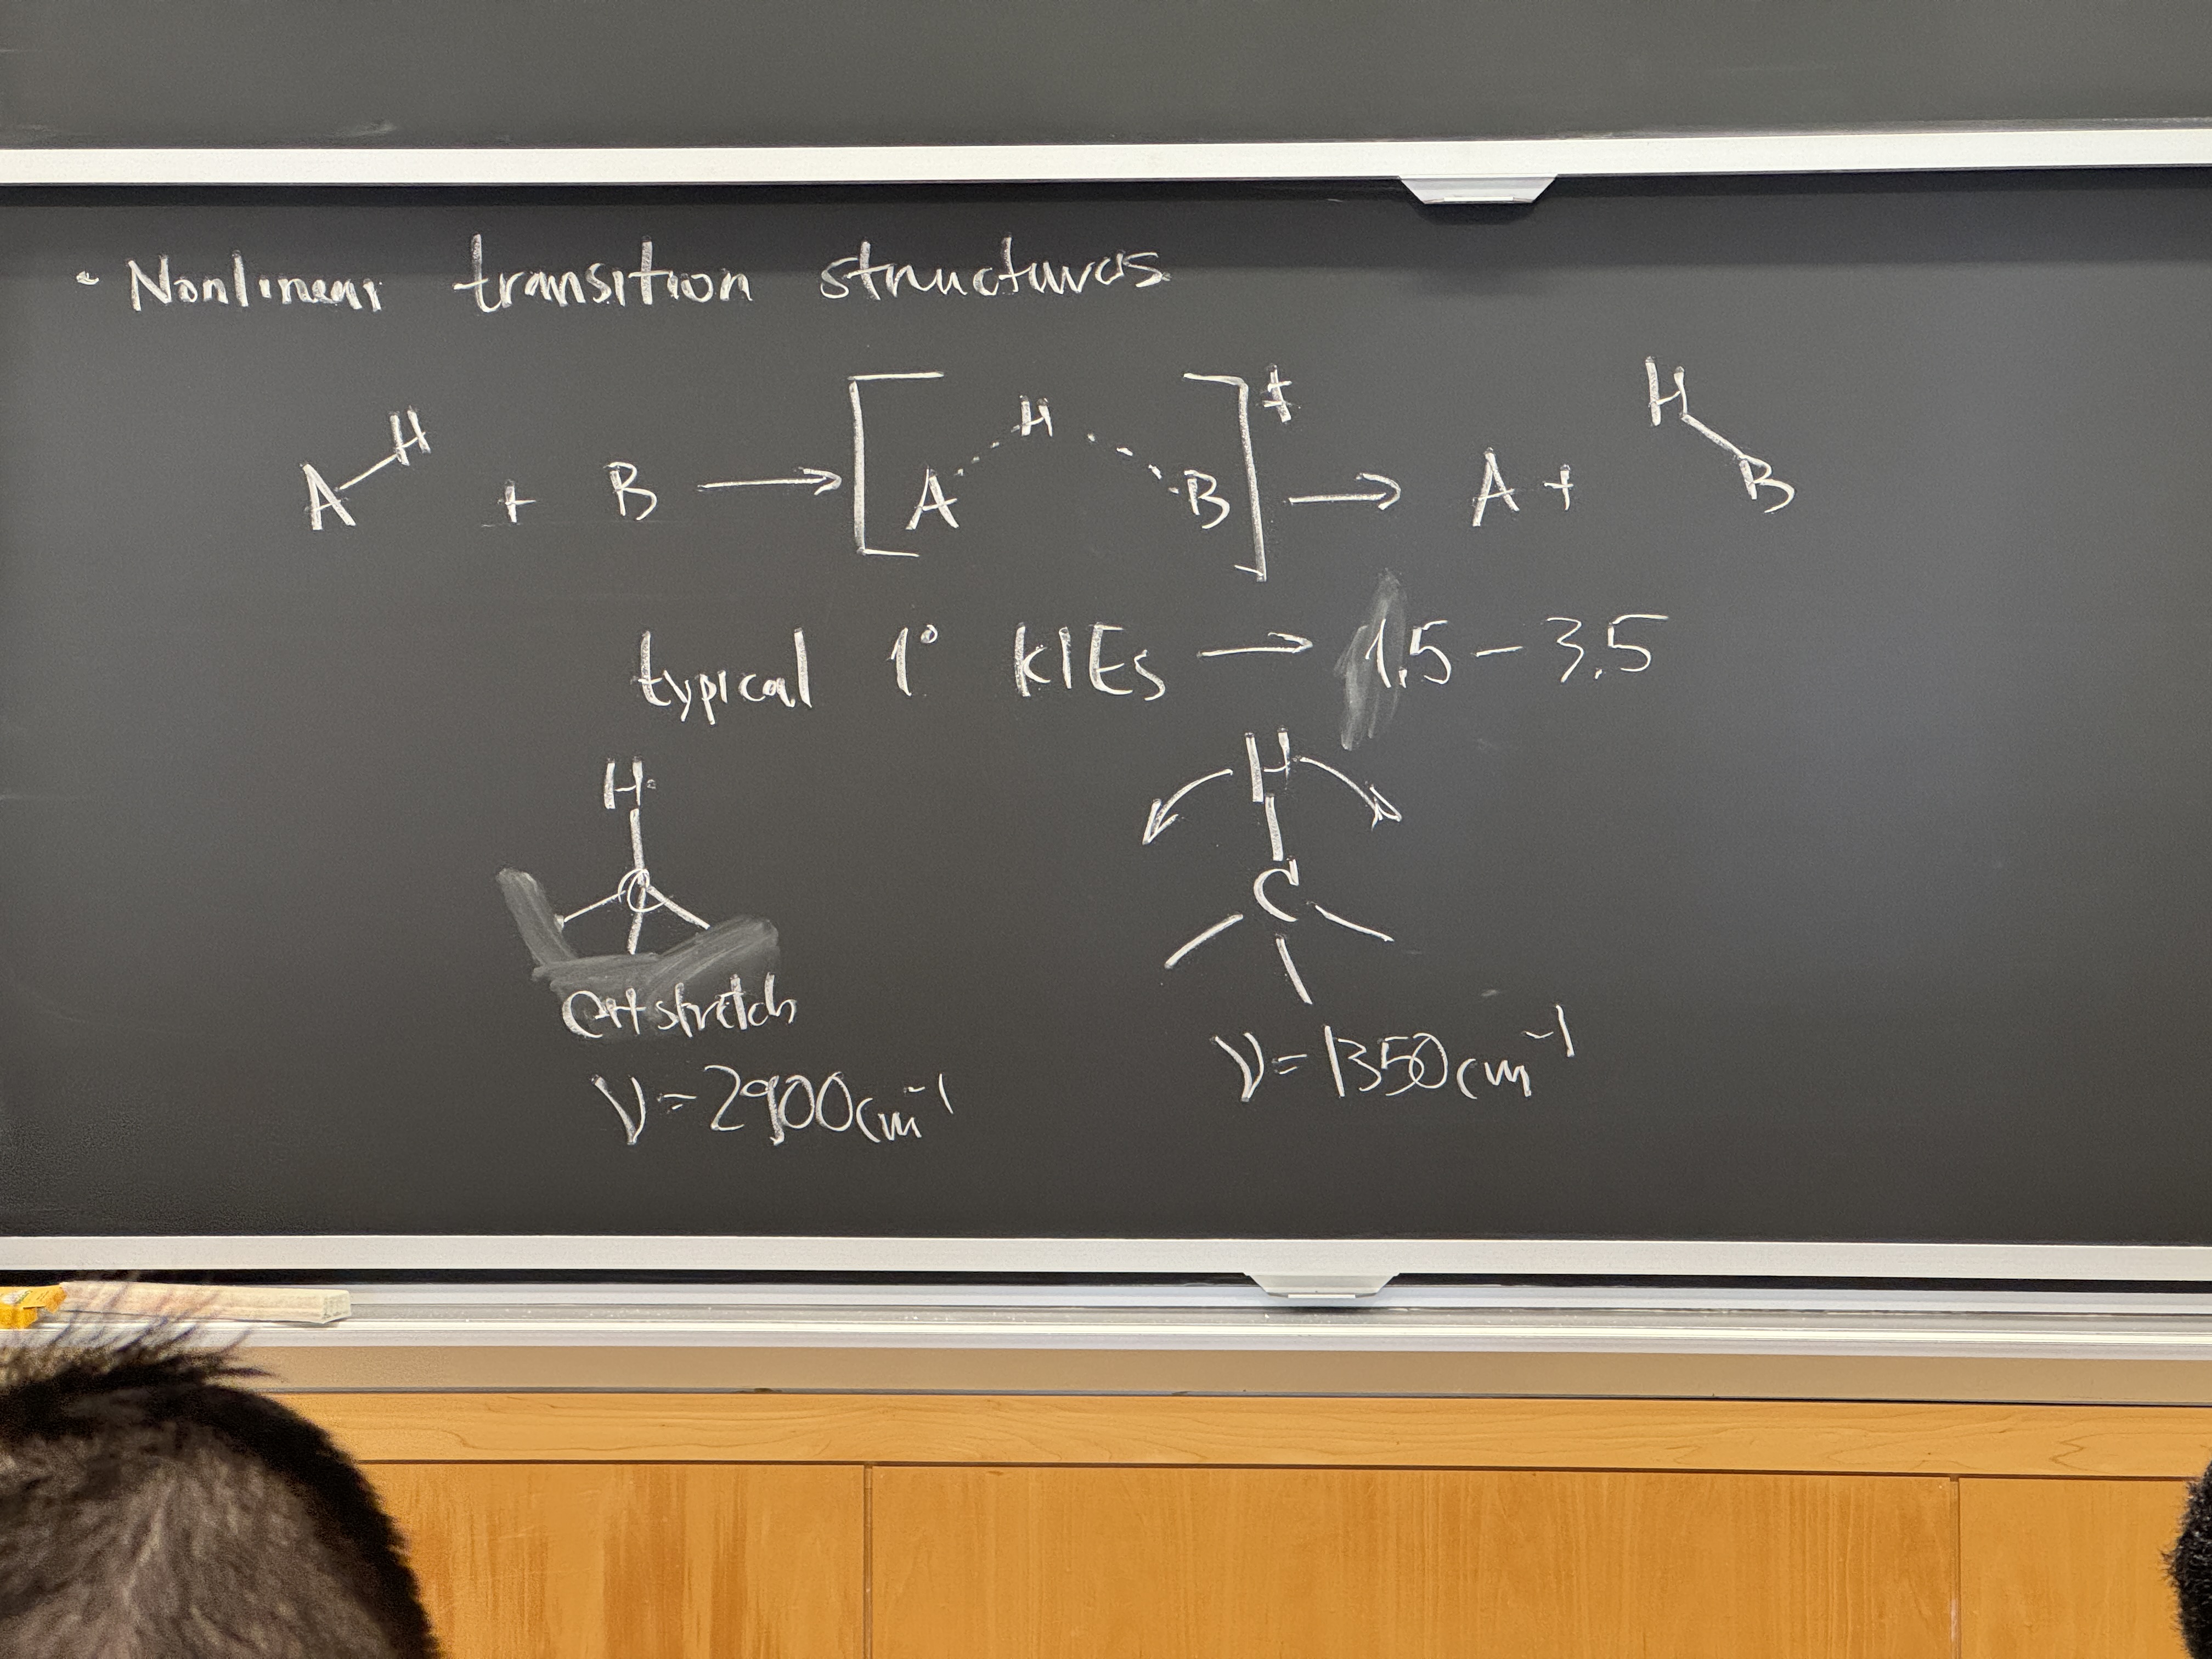 • Nonlinear transition structures
A-H + B → [A···H···B]‡ → A + H-B
typical 1° KIEs → 1.5 – 3.5
H H
C C
CH stretch
ν = 2900cm⁻¹ ν = 1350cm⁻¹